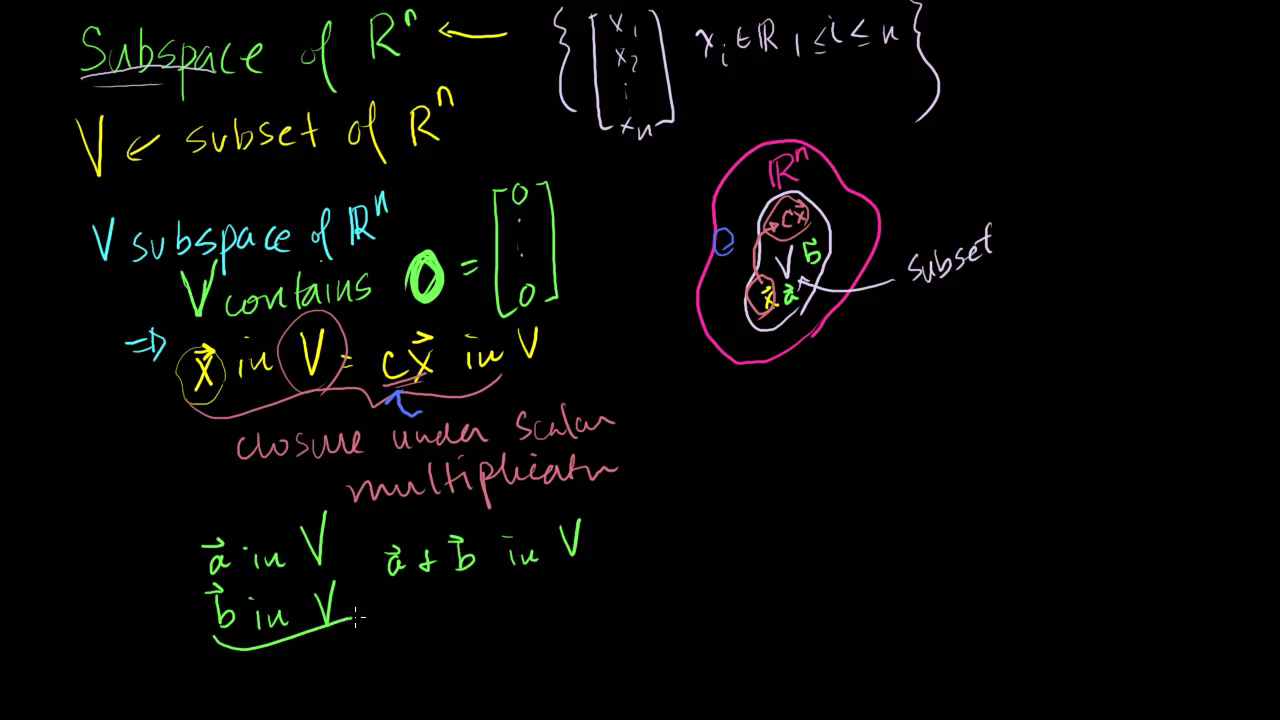 Subspace of Rⁿ ← { [ x₁ x₂ ⋮ xₙ ] xᵢ ∈ ℝ 1 ≤ i ≤ n }
V ← subset of Rⁿ
V subspace of ℝⁿ
V contains 0 = [ 0 ⋮ 0 ]
⇒ x⃗ in V = cx⃗ in V
closure under scalar
multiplicatn
a⃗ in V a⃗ + b⃗ in V
b⃗ in V
ℝⁿ
cx⃗
V b⃗
x⃗ a⃗
subset